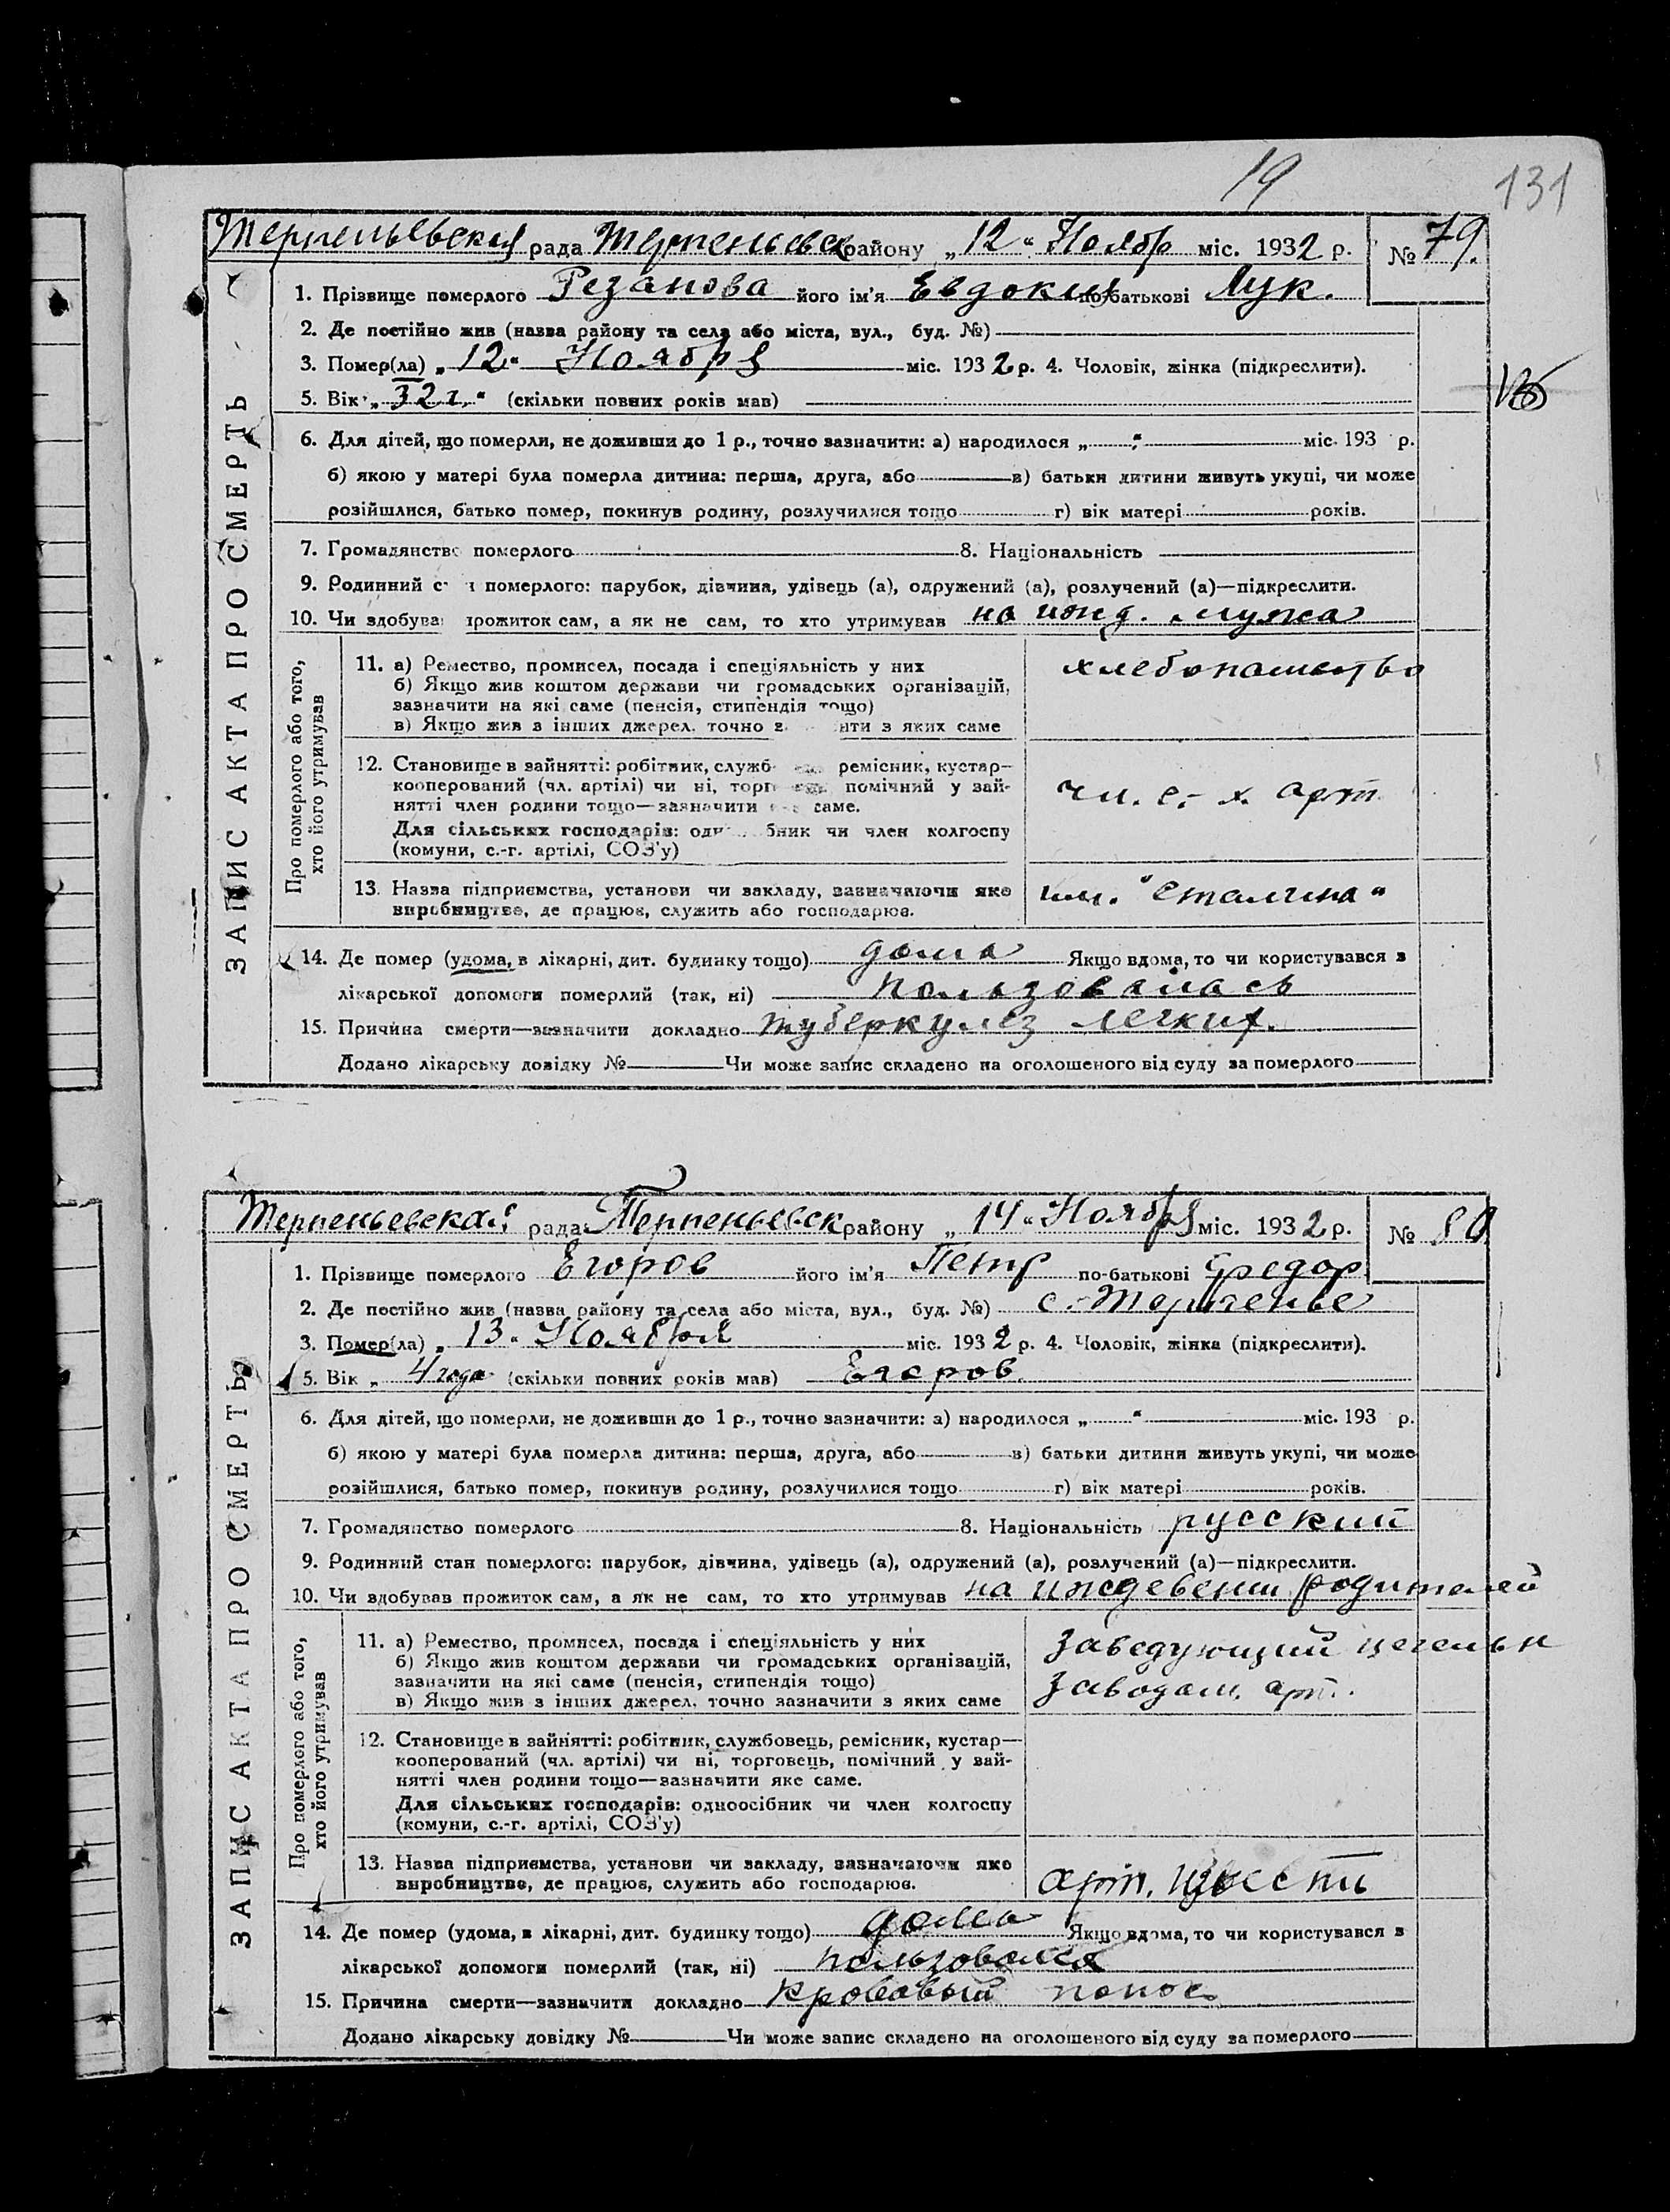 19
131
Терпеньевская рада Терпеньевск району „12“ Ноябр міс. 1932 р. № 79.
ЗАПИС АКТА ПРО СМЕРТЬ
1. Прізвище померлого Резанова його ім'я Евдокия по-батькові Лук.
2. Де постійно жив (назва району та села або міста, вул., буд. №)
3. Помер(ла) „12“ Ноября міс. 1932 р. 4. Чоловік, жінка (підкреслити).
5. Вік „32 г.“ (скільки повних років мав)
6. Для дітей, що померли, не доживши до 1 р., точно зазначити: а) народилося „ “ міс. 193 р.
б) якою у матері була померла дитина: перша, друга, або в) батьки дитини живуть укупі, чи може
розійшлися, батько помер, покинув родину, розлучилися тощо г) вік матері років.
7. Громадянство померлого 8. Національність
9. Родинний с н померлого: парубок, дівчина, удівець (а), одружений (а), розлучений (а)—підкреслити.
10. Чи здобува прожиток сам, а як не сам, то хто утримував на ижд. мужа
Про померлого або того,
хто його утримував
11. а) Ремество, промисел, посада і спеціяльність у них
б) Якщо жив коштом держави чи громадських організацій,
зазначити на які саме (пенсія, стипендія тощо)
в) Якщо жив з інших джерел, точно з нти з яких саме
хлебопашество
12. Становище в зайнятті: робітник, служб ремісник, кустар—
кооперований (чл. артілі) чи ні, торг помічний у зай-
нятті член родини тощо—зазначити саме.
Для сільських господарів: од бник чи член колгоспу
(комуни, с.-г. артілі, СОЗ'у)
чл. с.-х. арт
13. Назва підприємства, установи чи закладу, зазначаючи яке
виробництво, де працює, служить або господарює.
им. "Сталина"
14. Де помер (удома, в лікарні, дит. будинку тощо) дома Якщо вдома, то чи користувався з
лікарської допомоги померлий (так, ні) пользовалась
15. Причина смерти—зазначити докладно туберкулез легких.
Додано лікарську довідку № Чи може запис складено на оголошеного від суду за померлого
Терпеньевская рада Терпеньевск району „14“ Ноября міс. 1932 р. № 80
ЗАПИС АКТА ПРО СМЕРТЬ
1. Прізвище померлого Егоров його ім'я Петр по-батькові Федор
2. Де постійно жив (назва району та села або міста, вул., буд. №) с. Терпенье
3. Помер(ла) „13“ Ноября міс. 1932 р. 4. Чоловік, жінка (підкреслити).
5. Вік „ 4 года (скільки повних років мав) Егоров.
6. Для дітей, що померли, не доживши до 1 р., точно зазначити: а) народилося „ “ міс. 193 р.
б) якою у матері була померла дитина: перша, друга, або в) батьки дитини живуть укупі, чи може
розійшлися, батько помер, покинув родину, розлучилися тощо г) вік матері років.
7. Громадянство померлого 8. Національність русский
9. Родинний стан померлого: парубок, дівчина, удівець (а), одружений (а), розлучений (а)—підкреслити.
10. Чи здобував прожиток сам, а як не сам, то хто утримував на иждевении родителей
Про померлого або того,
хто його утримував
11. а) Ремество, промисел, посада і спеціяльність у них
б) Якщо жив коштом держави чи громадських організацій,
зазначити на які саме (пенсія, стипендія тощо)
в) Якщо жив з інших джерел, точно зазначити з яких саме
Заведующий цегельн
заводом. арт.
12. Становище в зайнятті: робітник, службовець, ремісник, кустар—
кооперований (чл. артілі) чи ні, торговець, помічний у зай-
нятті член родини тощо—зазначити яке саме.
Для сільських господарів: одноосібник чи член колгоспу
(комуни, с.-г. артілі, СОЗ'у)
13. Назва підприємства, установи чи закладу, зазначаючи яке
виробництво, де працює, служить або господарює.
арт.
14. Де помер (удома, в лікарні, дит. будинку тощо) дома Якщо вдома, то чи користувався з
лікарської допомоги померлий (так, ні) пользовался
15. Причина смерти—зазначити докладно кровавый понос
Додано лікарську довідку № Чи може запис складено на оголошеного від суду за померлого